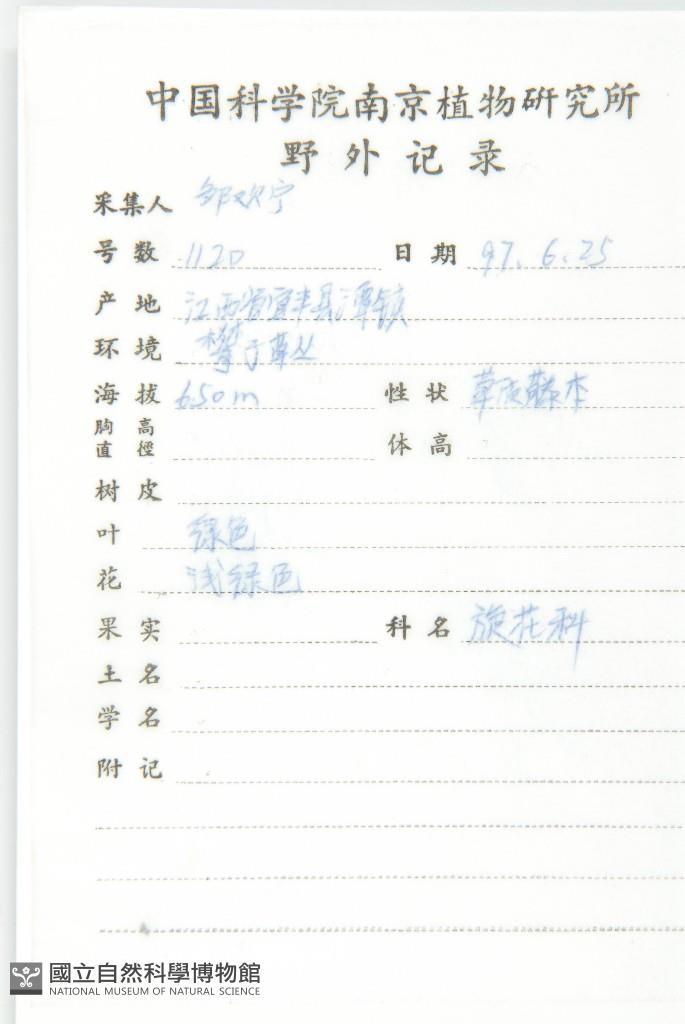 中国科学院南京植物研究所
野外记录
采集人 邹欢宁
号数 1120 日期 97.6.25
产地 江西省宜丰县潭镇
环境 攀于草丛
海拔 650m 性状 草质藤本
胸高直徑 体高
树皮
叶 绿色
花 浅绿色
果实 科名 旋花科
土名
学名
附记
國立自然科學博物館
NATIONAL MUSEUM OF NATURAL SCIENCE